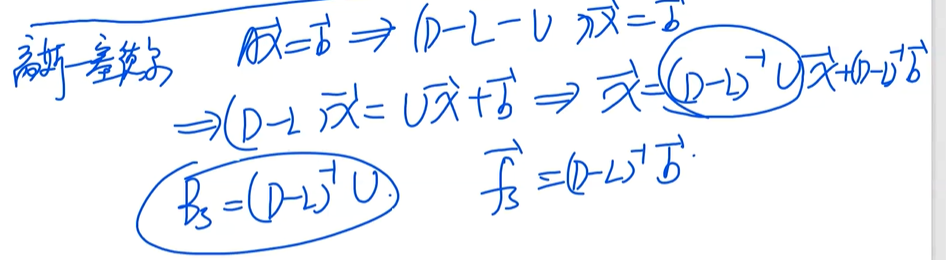 高斯-塞德尔 A\vec{x}=\vec{b} ⇒ (D-L-U)\vec{x}=\vec{b}
⇒(D-L)\vec{x}=U\vec{x}+\vec{b} ⇒ \vec{x}=(D-L)^{-1}U\vec{x}+(D-L)^{-1}\vec{b}
B_3=(D-L)^{-1}U. \vec{f}_3=(D-L)^{-1}\vec{b}.